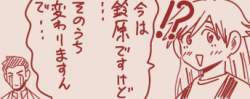 !?
今は
鈴原ですけど
そのうち
変わりますんで…